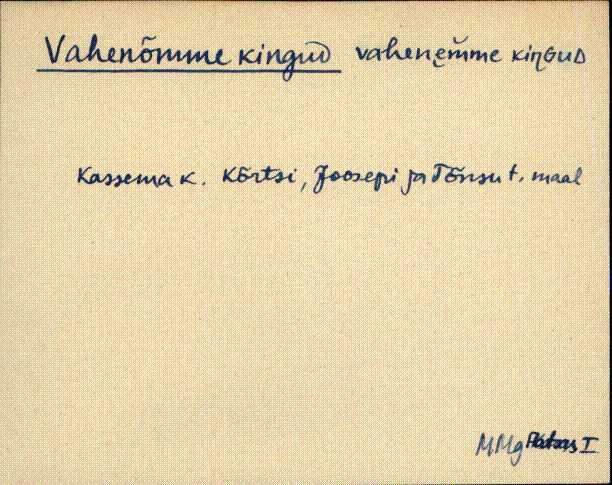 Vahenõmme kingud vahenẹ̆mme kiŋGuD
Kassema k. Kõrtsi, Joosepi ja Tõnsu t. maal
MMg I